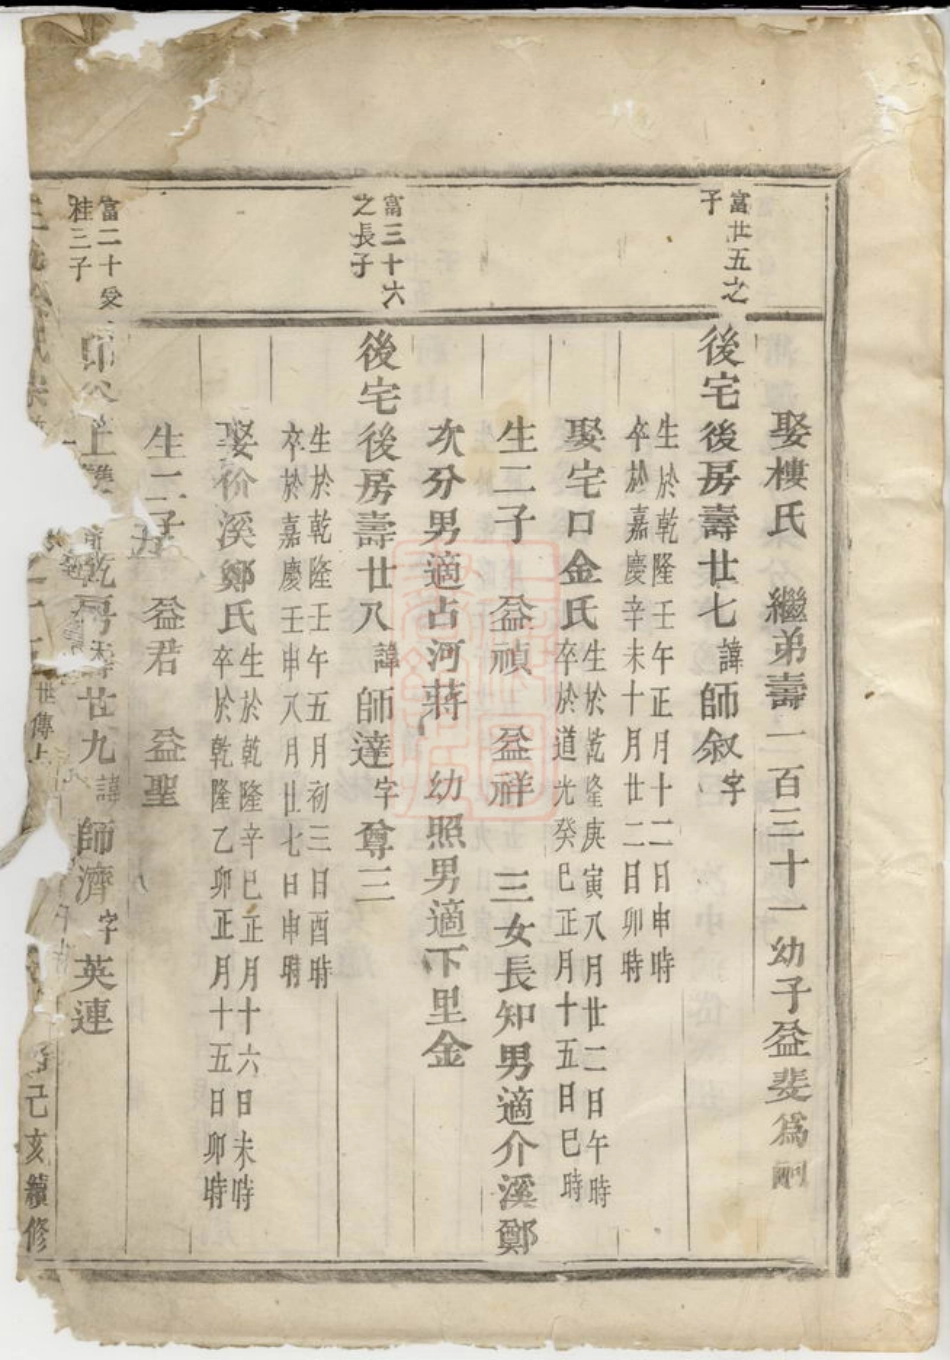 娶樓氏 繼弟壽一百三十一幼子益斐爲嗣
富廿五之
子
後宅後房壽廿七諱師叙字
生於乾隆壬午正月十二日申時
卒於嘉慶辛未十月廿二日卯時
娶宅口金氏生於乾隆庚寅八月廿二日午時
卒於道光癸巳正月十五日巳時
生二子 益禎 益祥 三女長知男適介溪鄭
次分男適占河蔣 幼照男適下里金
富三十六
之長子
後宅後房壽廿八諱師達字尊三
生於乾隆壬午五月初三日酉時
卒於嘉慶壬申八月廿七日申時
娶 溪鄭氏生於乾隆辛巳正月十六日未時
卒於乾隆乙卯正月十五日卯時
生二子 益君 益聖
富二十受
桂三子
上 房壽廿九諱師濟字英連
世傳上
己亥續修